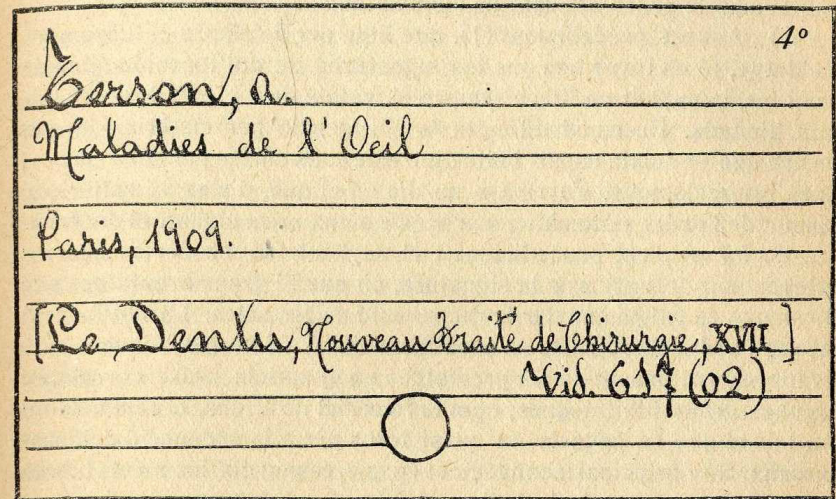 4º
Terson, A.
Maladies de l'Oeil
Paris, 1909.
[Le Dentu, Nouveau Traité de Chirurgie, XVII]
Vid. 617 (02)